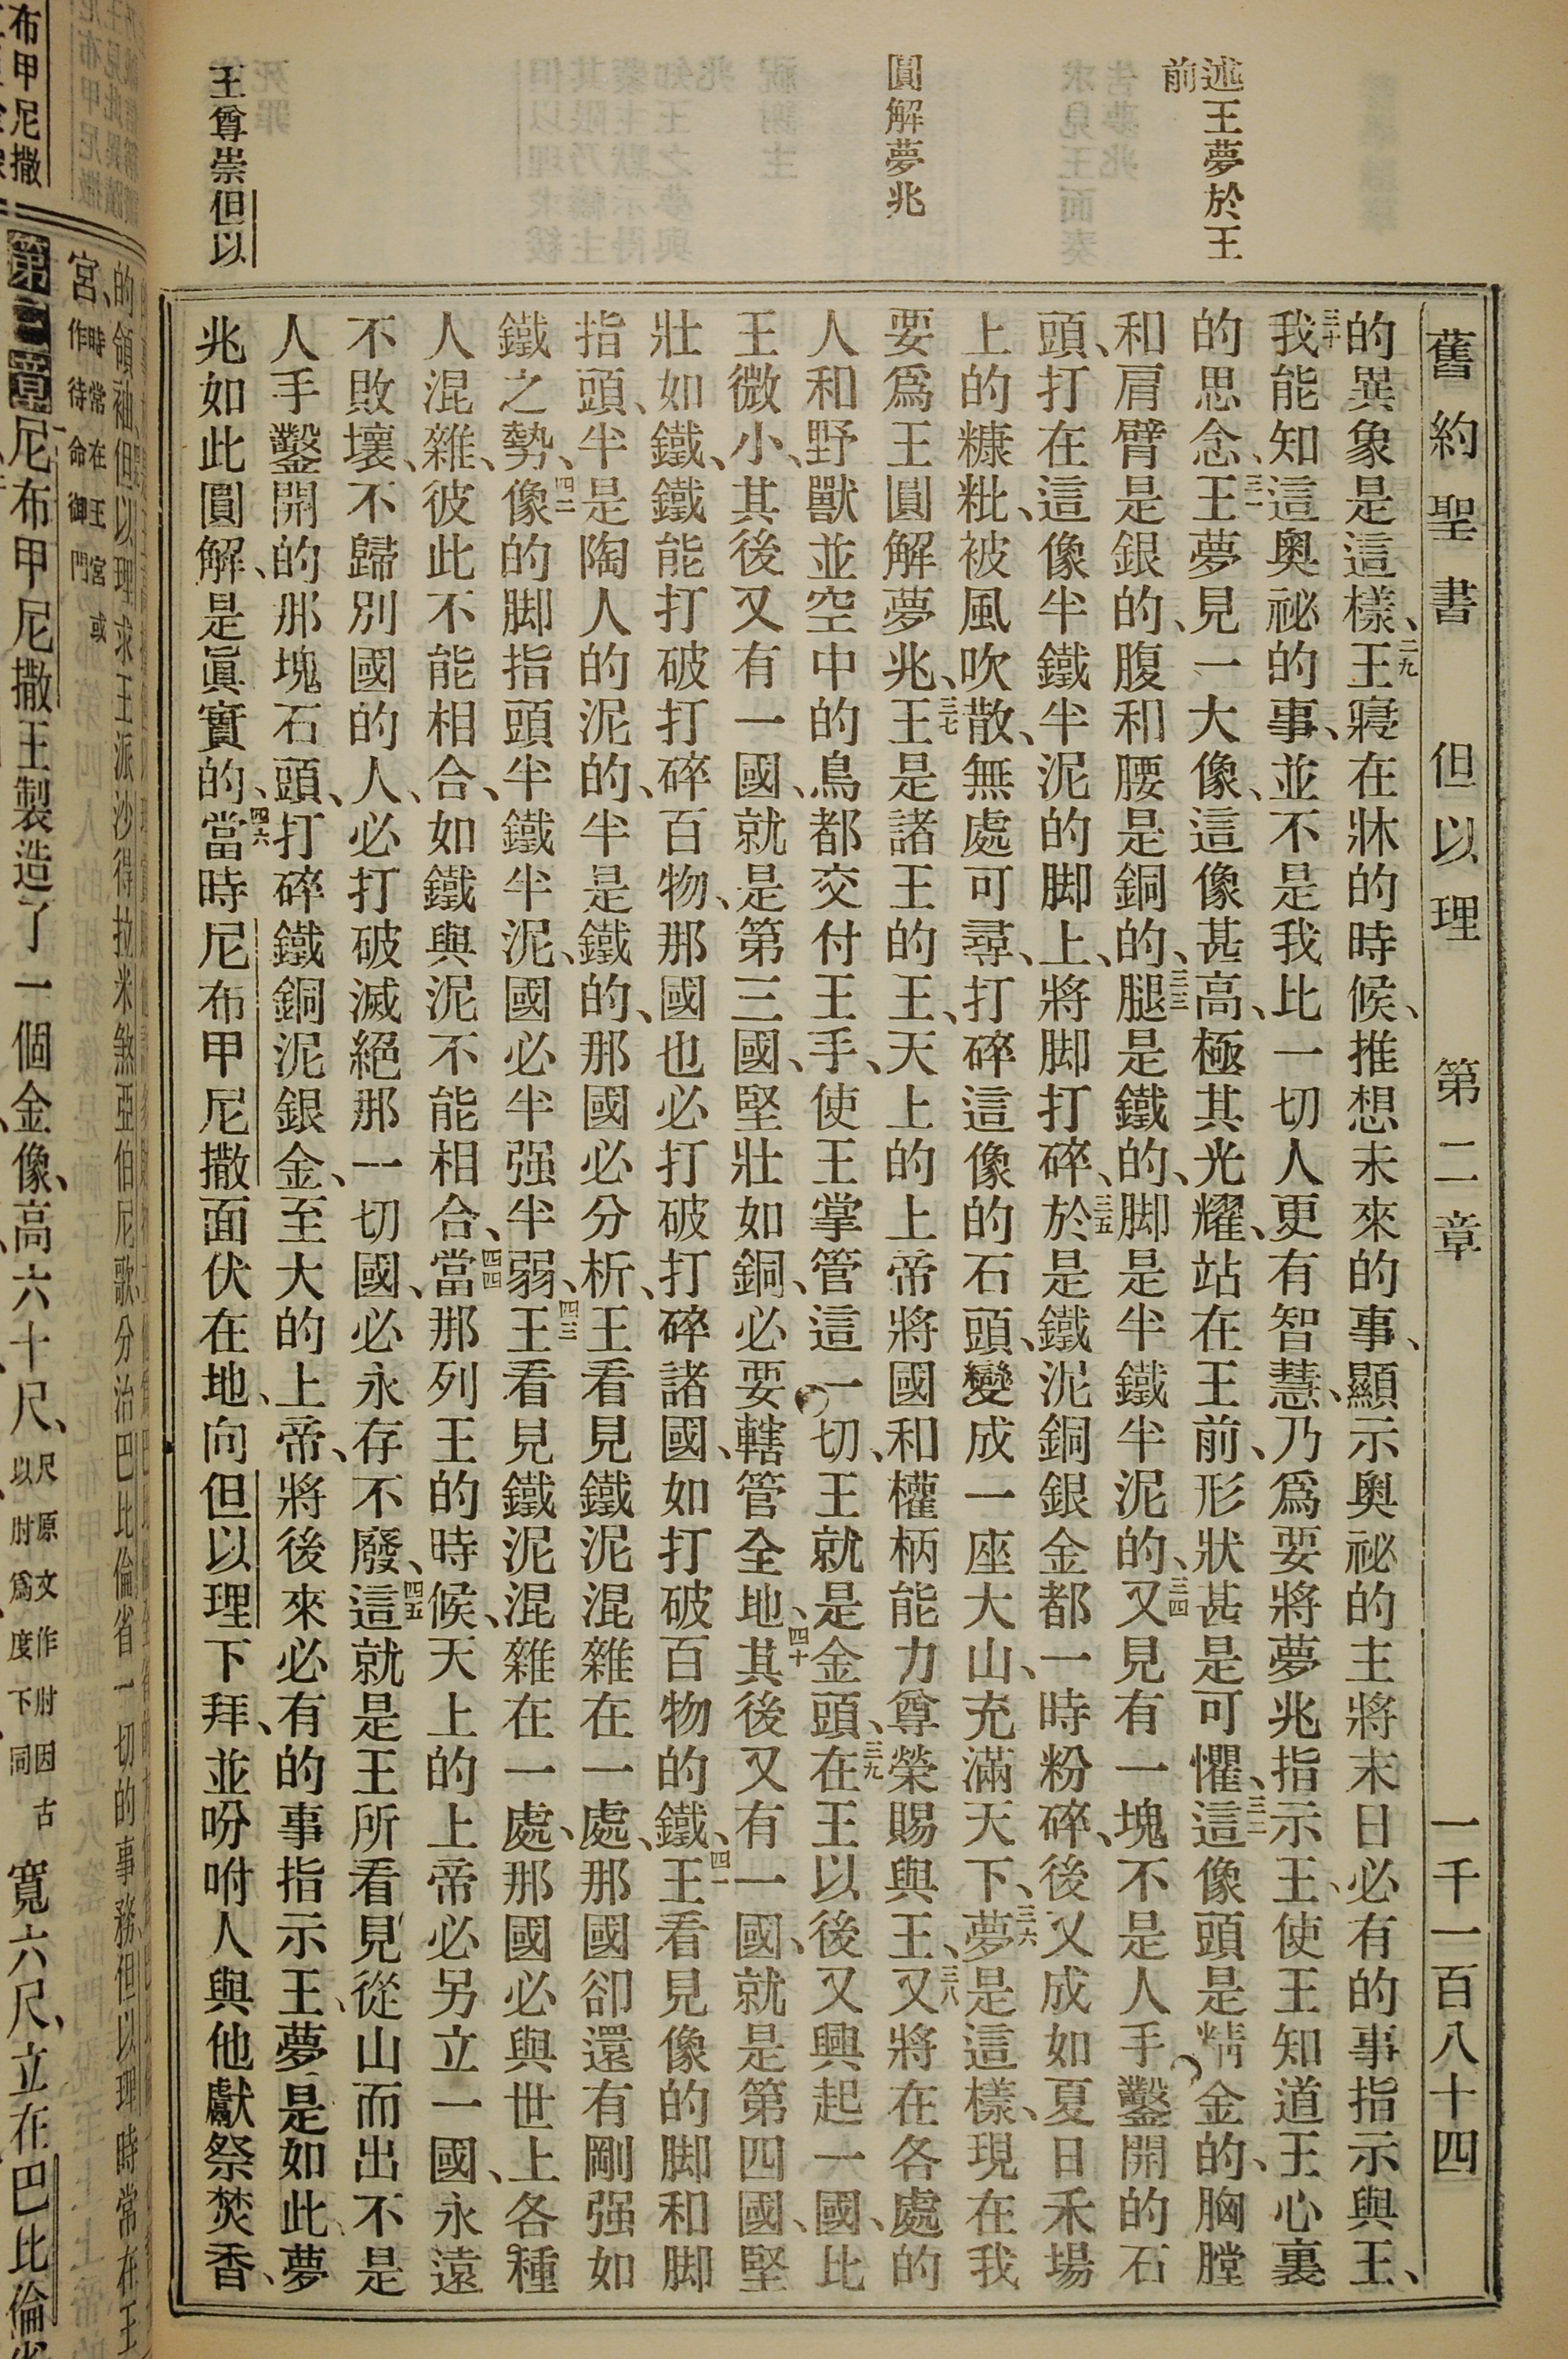 舊約聖書 但以理 第二章 一千一百八十四
述王夢於王
前
圓解夢兆
王尊崇但以
的異象是這樣、二九王寢在牀的時候、推想未來的事、顯示奧祕的主將末日必有的事指示與王、
三十我能知這奧祕的事、並不是我比一切人更有智慧、乃爲要將夢兆指示王、使王知道王心裏
的思念、三一王夢見一大像、這像甚高、極其光耀、站在王前、形狀甚是可懼、三二這像頭是精金的、胸膛
和肩臂是銀的、腹和腰是銅的、三三腿是鐵的、脚是半鐵半泥的、三四又見有一塊不是人手鑿開的石
頭、打在這像半鐵半泥的脚上、將脚打碎、三五於是鐵泥銅銀金都一時粉碎、後又成如夏日禾場
上的糠粃、被風吹散、無處可尋、打碎這像的石頭、變成一座大山、充滿天下、三六夢是這樣、現在我
要爲王圓解夢兆、三七王是諸王的王、天上的上帝將國和權柄能力尊榮賜與王、三八又將在各處的
人和野獸並空中的鳥都交付王手、使王掌管這一切、王就是金頭、三九在王以後又興起一國、比
王微小、其後又有一國、就是第三國、堅壯如銅、必要轄管全地、四十其後又有一國、就是第四國、堅
壯如鐵、鐵能打破打碎百物、那國也必打破打碎諸國、如打破百物的鐵、四一王看見像的脚和脚
指頭、半是陶人的泥的、半是鐵的、那國必分析、王看見鐵泥混雜在一處、那國卻還有剛强如
鐵之勢、四二像的脚指頭半鐵半泥、國必半强半弱、四三王看見鐵泥混雜在一處、那國必與世上各種
人混雜、彼此不能相合、如鐵與泥不能相合、四四當那列王的時候、天上的上帝必另立一國、永遠
不敗壞、不歸別國的人、必打破滅絕那一切國、必永存不廢、四五這就是王所看見從山而出不是
人手鑿開的那塊石頭、打碎鐵銅泥銀金、至大的上帝、將後來必有的事指示王、夢是如此、夢
兆如此圓解、是眞實的、四六當時尼布甲尼撒面伏在地、向但以理下拜、並吩咐人與他獻祭焚香、
的領袖、但以理求王派沙得拉米煞亞伯尼歌分治巴比倫省一切的事務但以理時常在王
宮、時常在王宮或作待命御門
布甲尼撒
第三章 尼布甲尼撒王製造了一個金像、高六十尺、尺原文作肘因古以肘爲度下同 寬六尺、立在巴比倫省